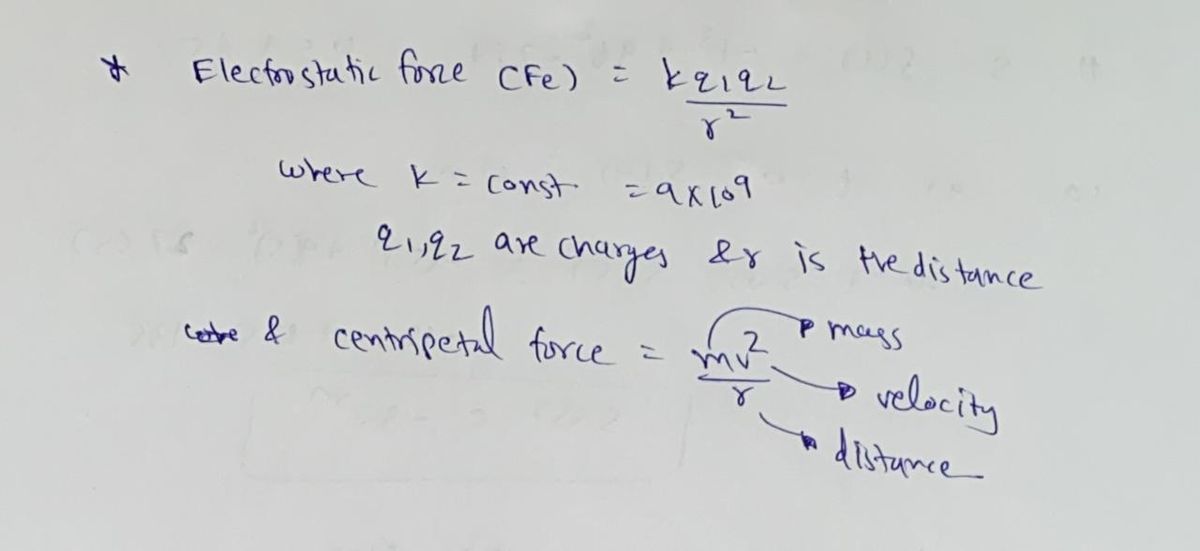 * Electrostatic force (Fe) = kq1q2 / r²
where k = const = 9x10⁹
q1,q2 are charges & r is the distance
& centripetal force = mv² / r → mass
→ velocity
→ distance